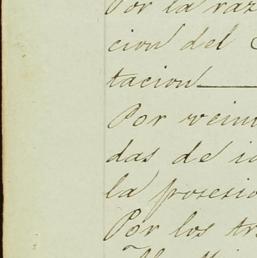 Por la raz
cion del
tacion
Por vein
das de i
la posesio
Por los tr